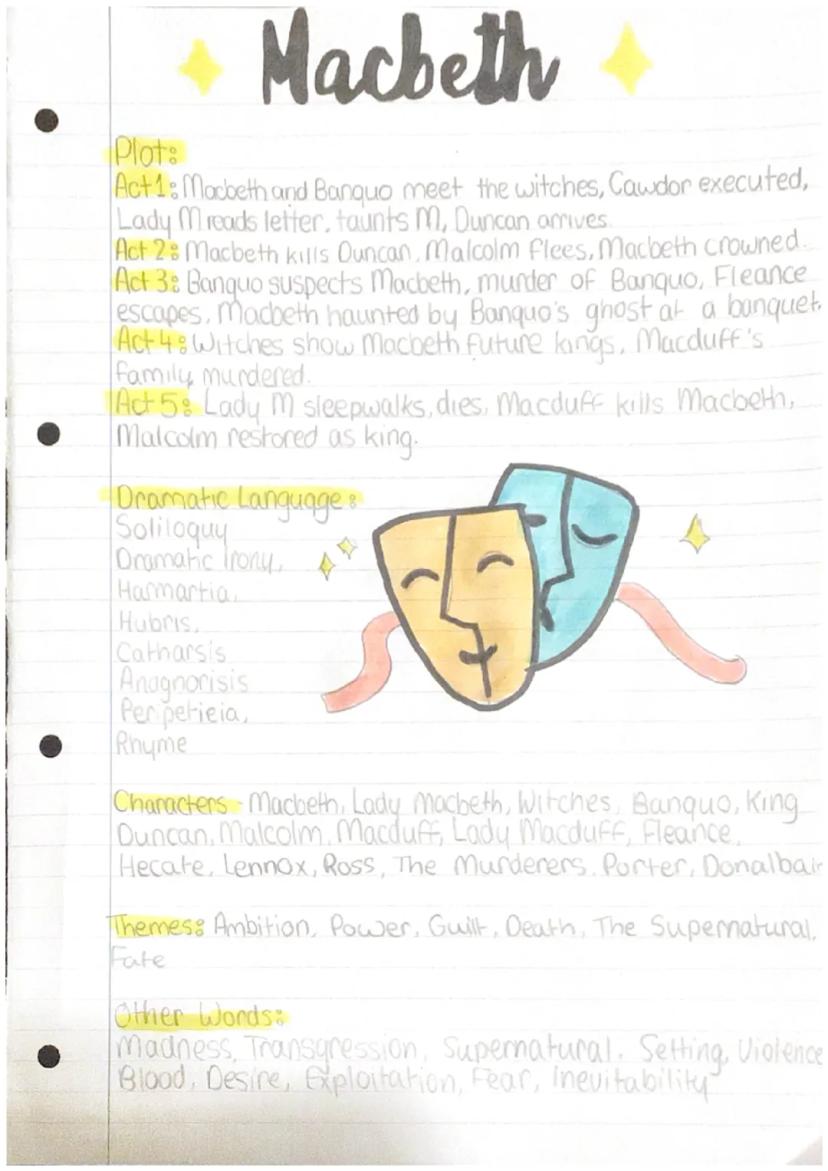 Macbeth
Plot:
Act 1: Macbeth and Banquo meet the witches, Cawdor executed,
Lady M reads letter, taunts M, Duncan arrives.
Act 2: Macbeth kills Duncan, Malcolm flees, Macbeth crowned.
Act 3: Banquo suspects Macbeth, murder of Banquo, Fleance
escapes, Macbeth haunted by Banquo's ghost at a banquet.
Act 4: Witches show Macbeth future kings, Macduff's
family murdered.
Act 5: Lady M sleepwalks, dies, Macduff kills Macbeth,
Malcolm restored as king.
Dramatic Language:
Soliloquy
Dramatic Irony,
Harmartia,
Hubris,
Catharsis
Anagnorisis
Peripetieia,
Rhyme
Characters - Macbeth, Lady Macbeth, Witches, Banquo, King
Duncan, Malcolm, Macduff, Lady Macduff, Fleance,
Hecate, Lennox, Ross, The Murderers, Porter, Donalbain
Themes: Ambition, Power, Guilt, Death, The Supernatural,
Fate
Other Words:
Madness, Transgression, Supernatural, Setting, Violence
Blood, Desire, Exploitation, Fear, Inevitability